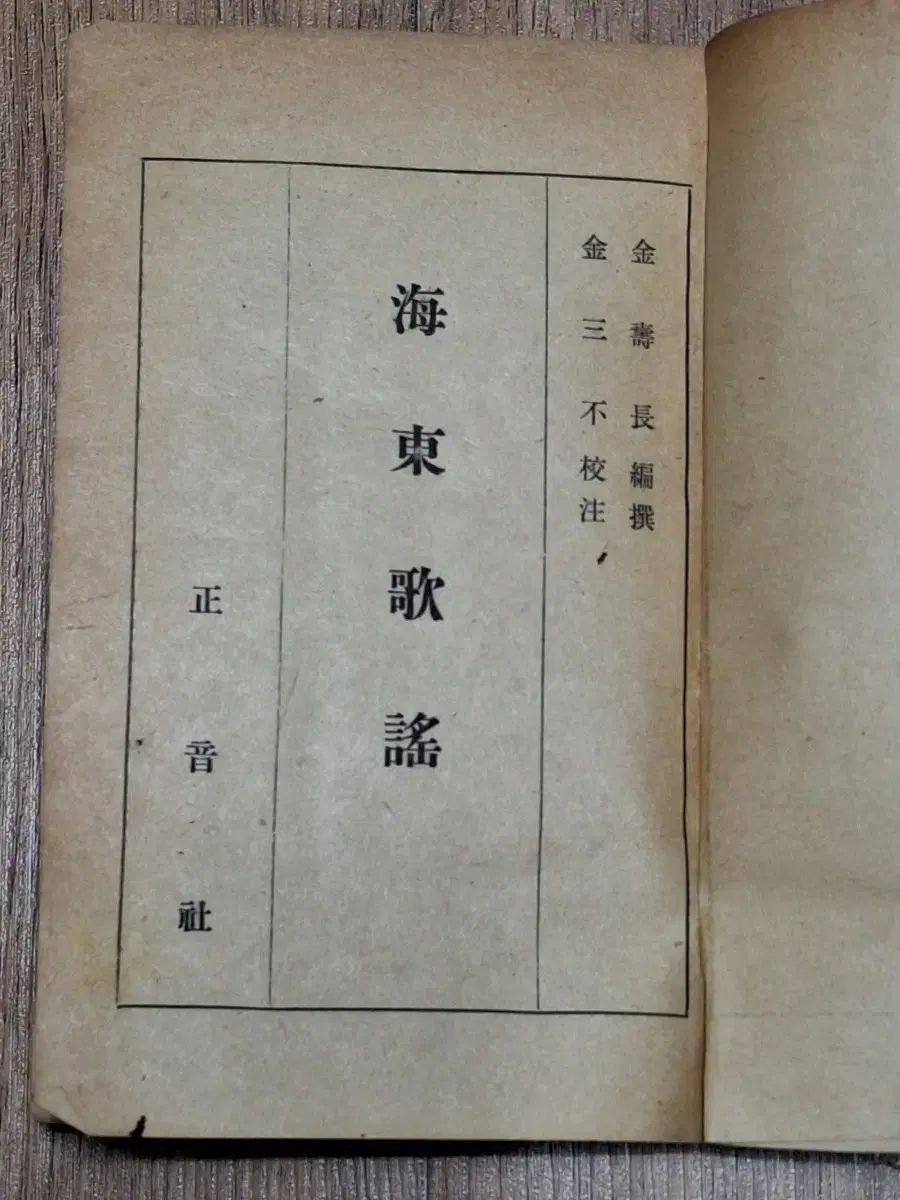 金壽長編撰
金三不校注
海東歌謠
正音社